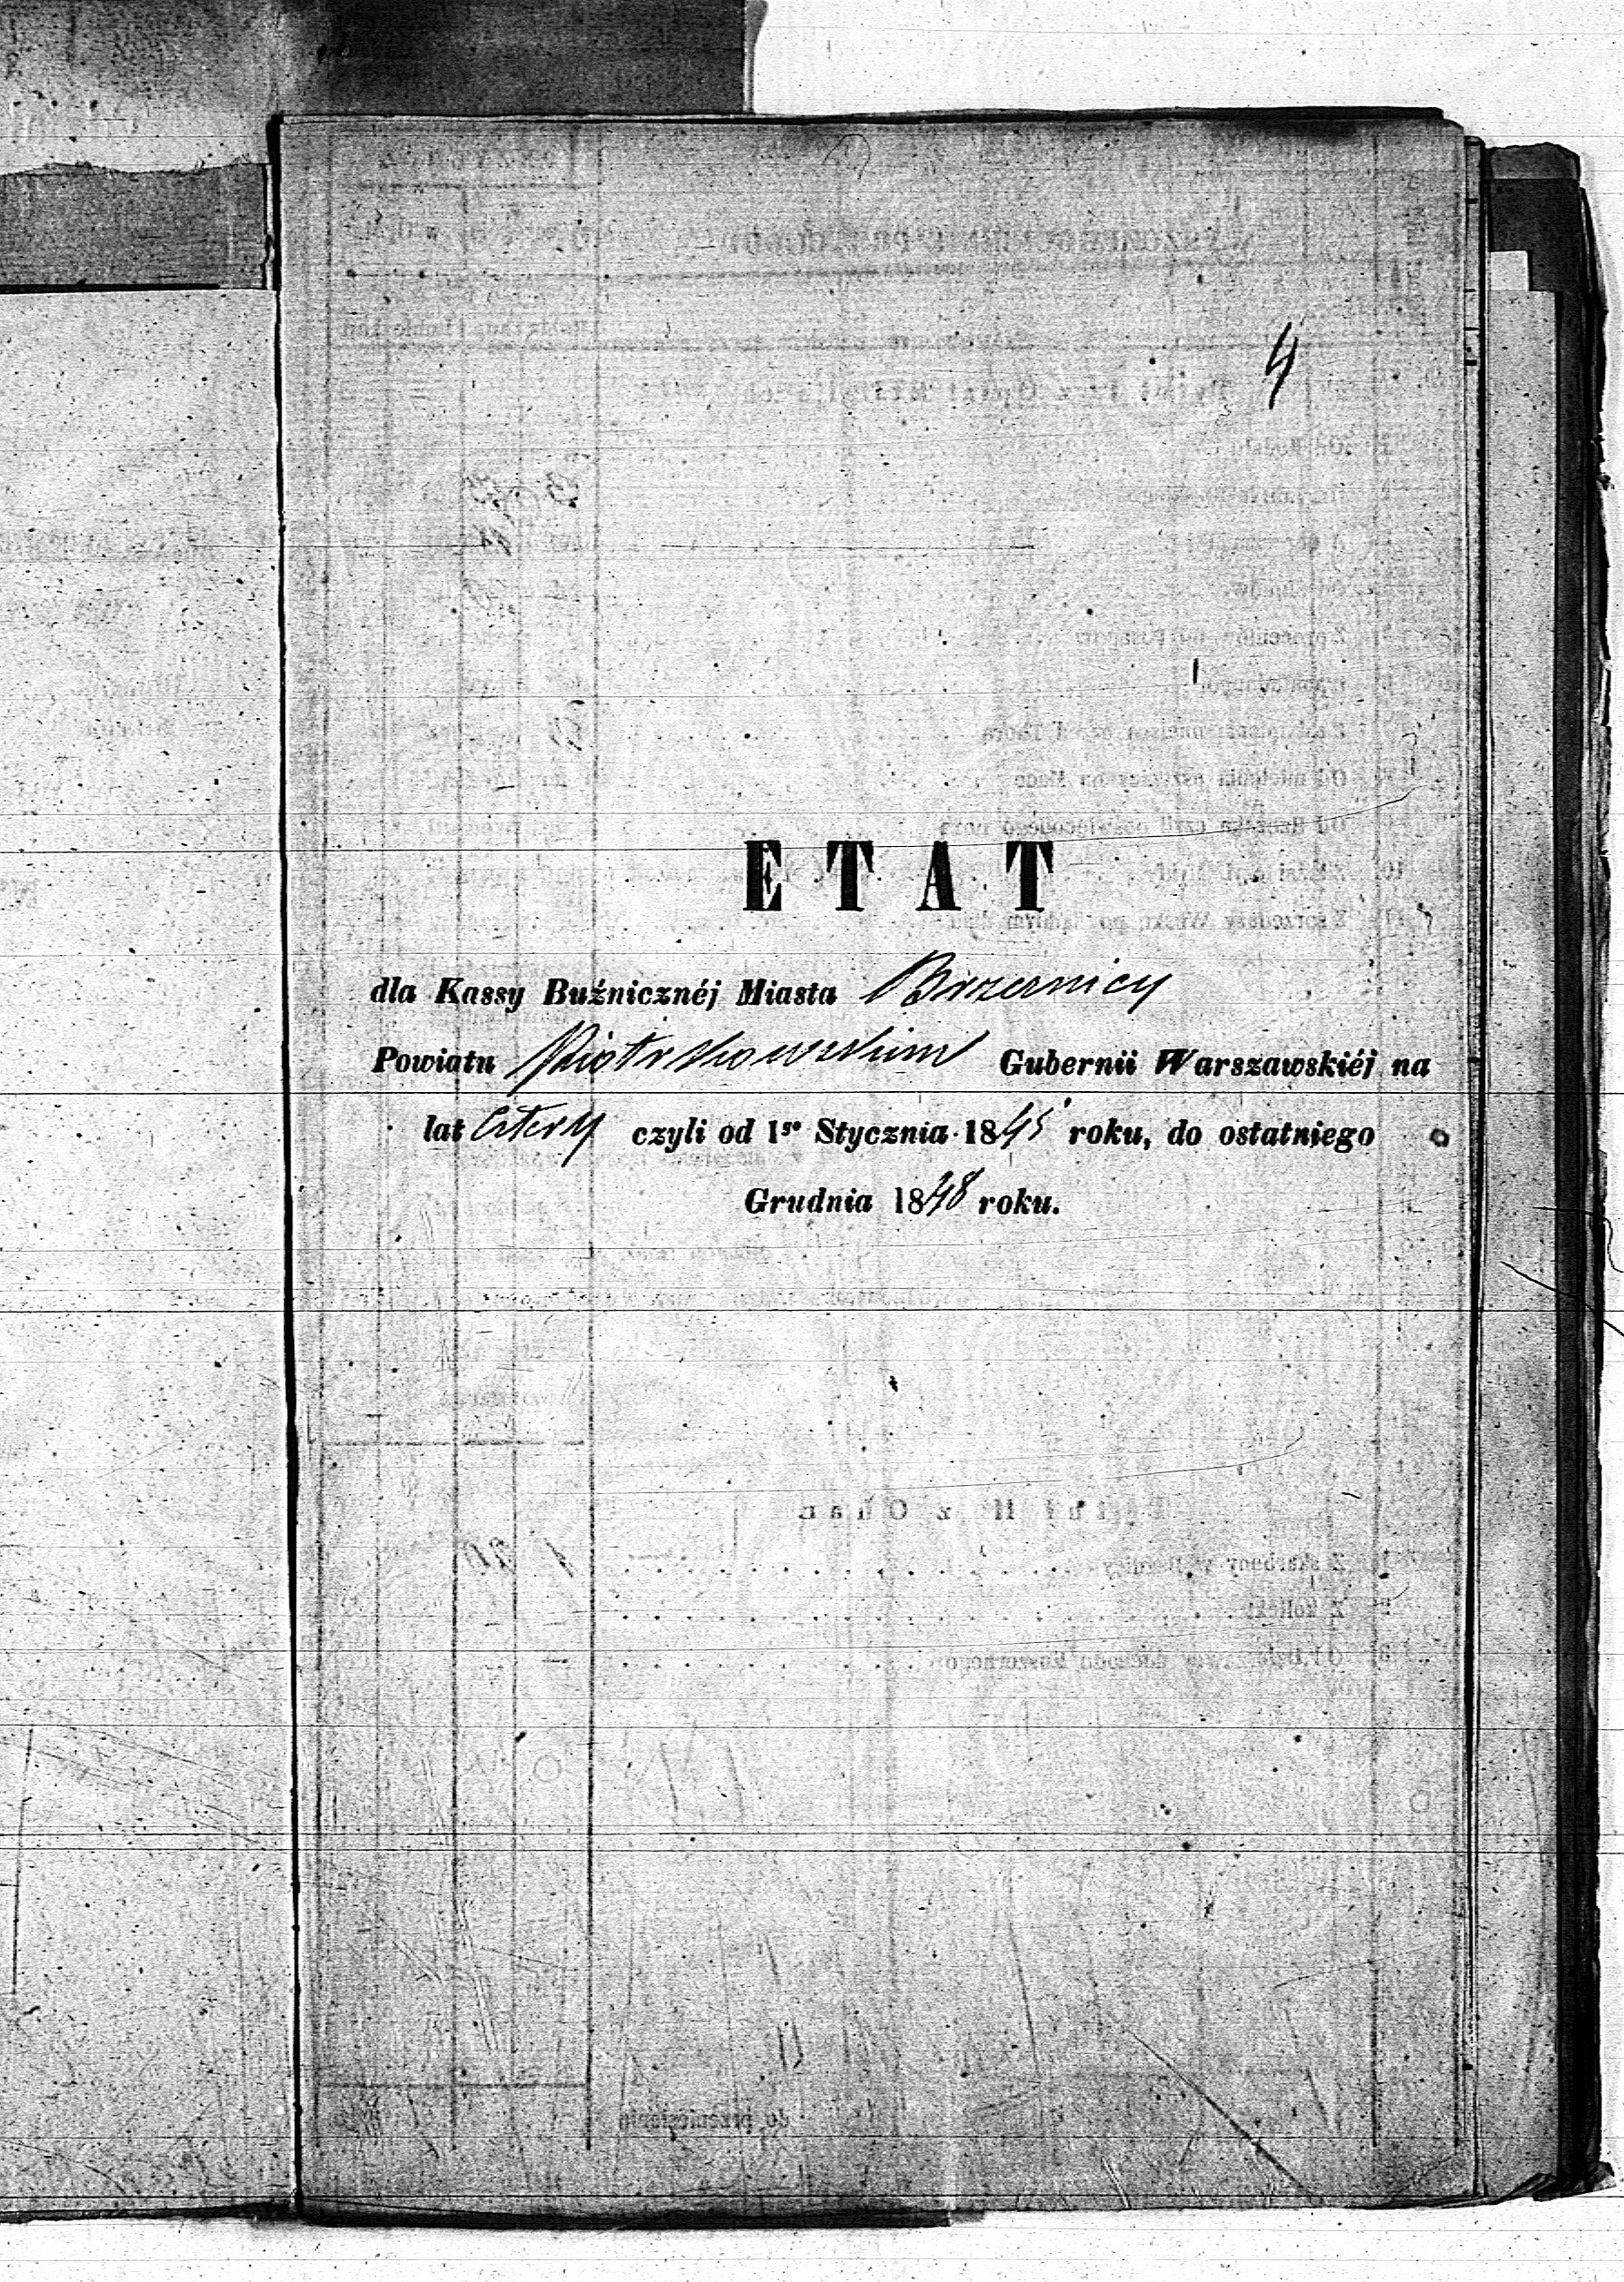 4
ETAT
dla Kassy Buźnicznéj Miasta Brzeznicy
Powiatu Piotrkowskim Gubernii Warszawskiéj na
lat cztery czyli od 1go Stycznia 1845 roku, do ostatniego
Grudnia 1848 roku.